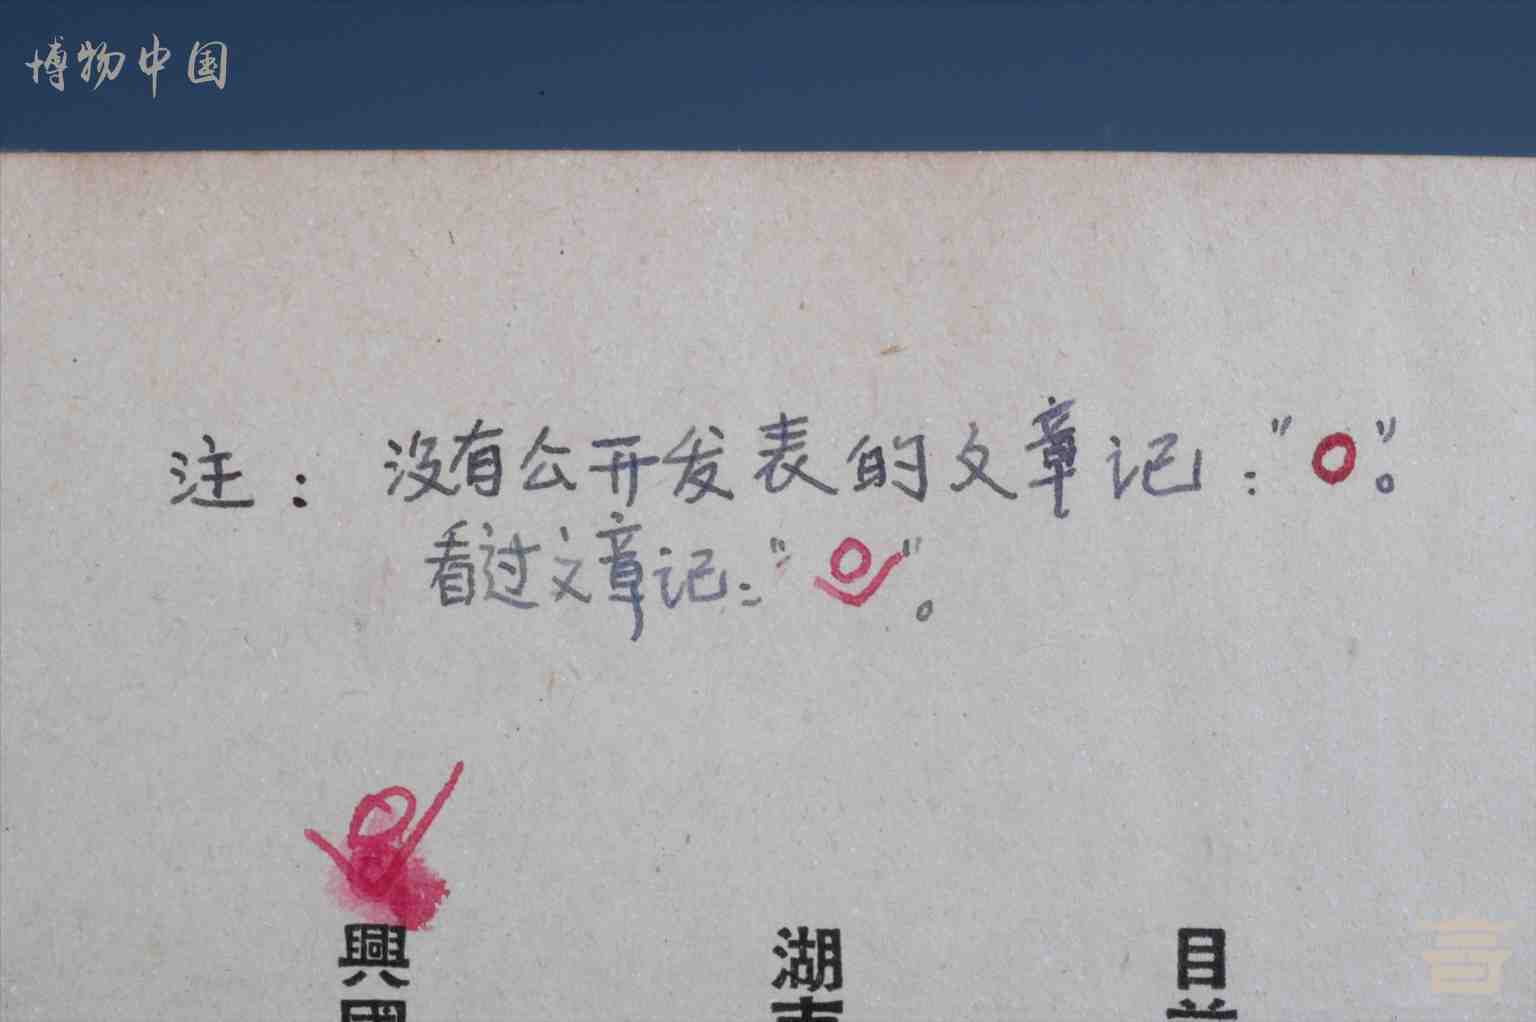 博物中国
注：没有公开发表的文章记："○"。
看过文章记："○"。
興國
湖
目